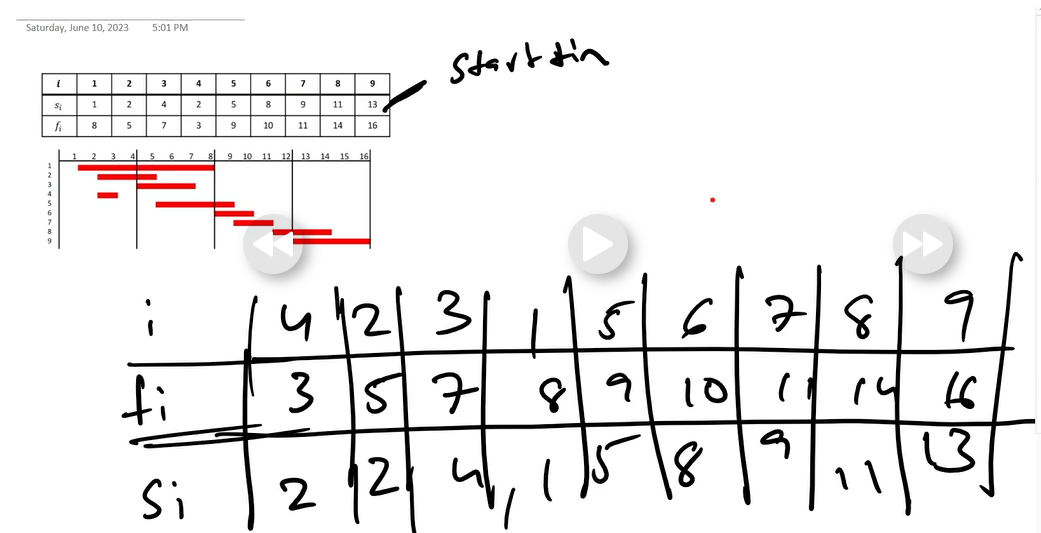 Saturday, June 10, 2023 5:01 PM
start tim
i 1 2 3 4 5 6 7 8 9
si 1 2 4 2 5 8 9 11 13
fi 8 5 7 3 9 10 11 14 16
1 2 3 4 5 6 7 8 9 10 11 12 13 14 15 16
1
2
3
4
5
6
7
8
9
i 4 2 3 1 5 6 7 8 9
fi 3 5 7 8 9 10 11 14 16
si 2 2 4 1 5 8 9 11 13